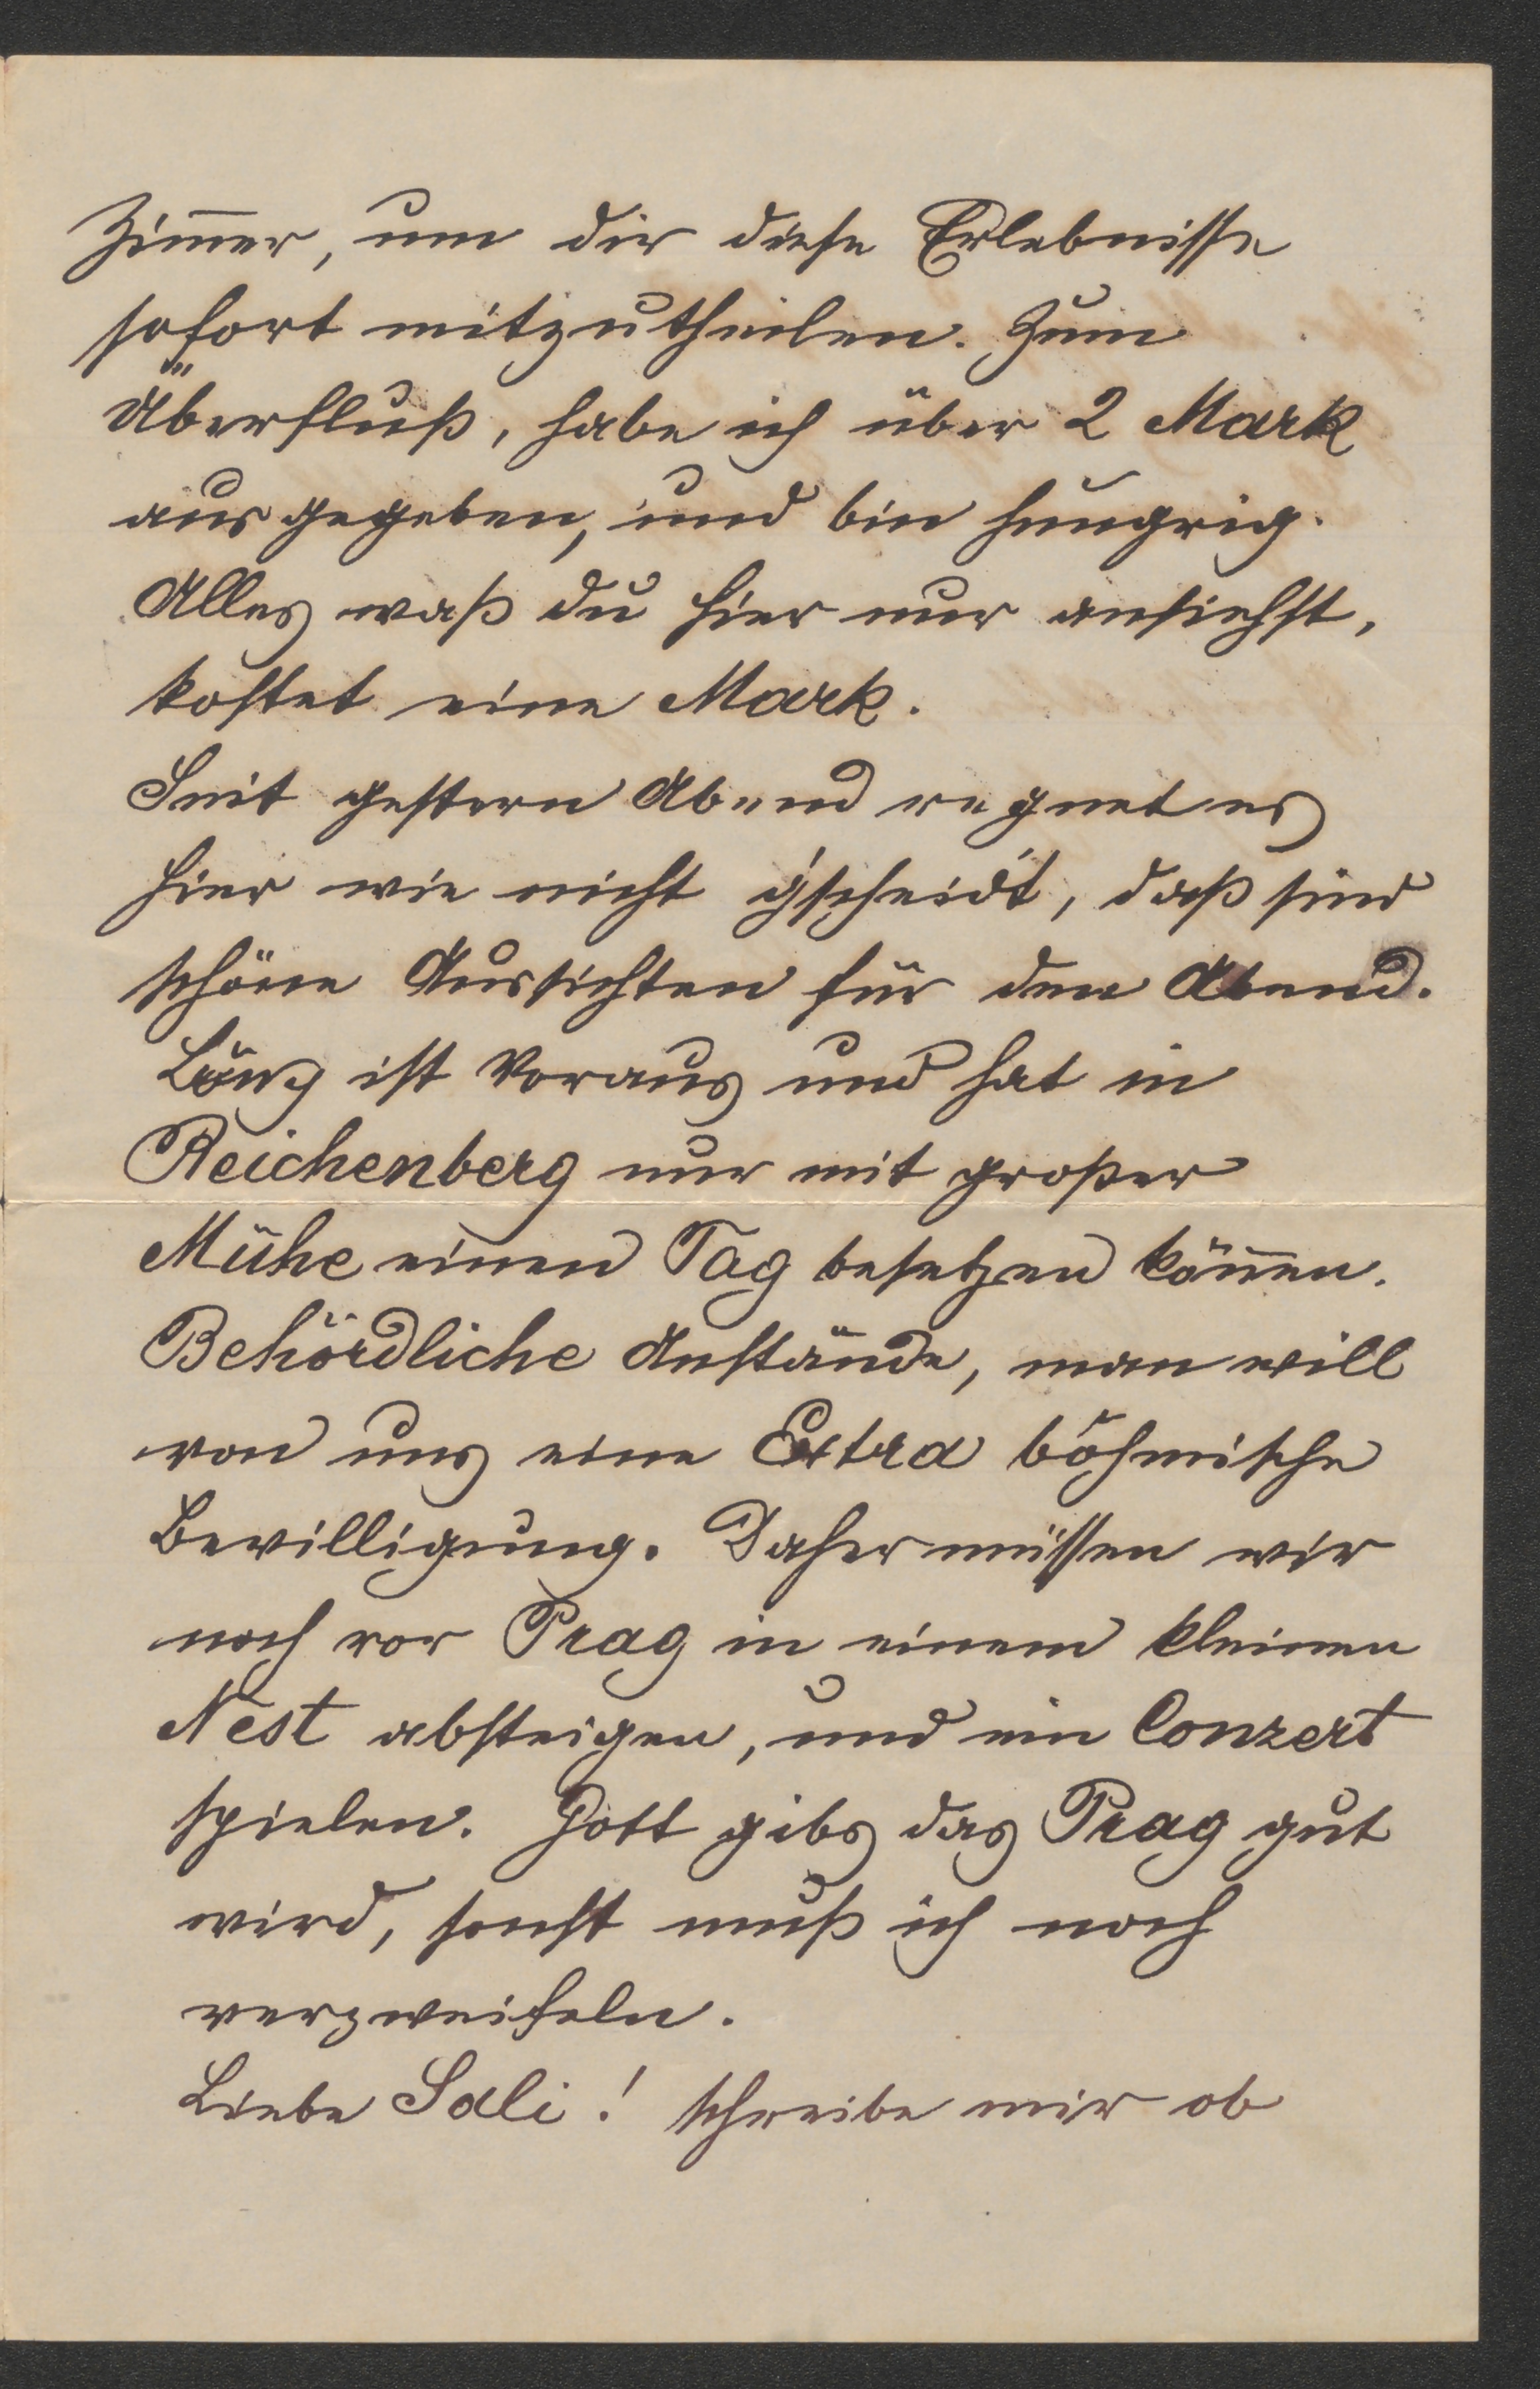 Zim̅er, um dir diese Erlebnisse
sofort mitzutheilen. Zum
Überfluß, habe ich über 2 Mark
ausgegeben, und bin hungrig.
Alles waß du hier nur ansiehst,
kostet eine Mark.
Seit gestern Abend regnet es
hier wie nicht g'scheidt, daß sind
schöne Aussichten für den Abend.
Löwy ist Voraus und hat in
Reichenberg nur mit großer
Mühe einen Tag besetzen kön̅en.
Behördliche Anstände, man will
von uns eine Extra böhmische
Bewilligung. Daher müssen wir
noch vor Prag in einem kleinen
Nest absteigen, und ein Conzert
spielen. Gott gibs das Prag gut
wird, sonst muß ich noch
verzweifeln.
Liebe Sali! schreibe mir ob